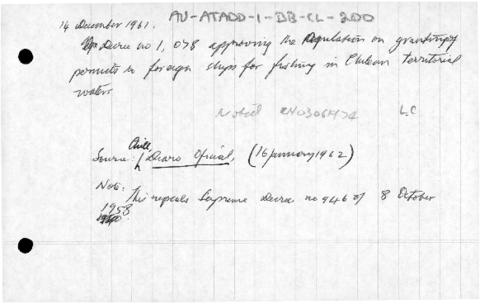 AU-ATADD-1-BB-CL-200
14 December 1961.
Decree no 1,078 approving the Regulation on granting of
permits to foreign ships for fishing in Chilean territorial
waters
Noted LC
Source: Chile, Diario Oficial, (16 January 1962)
Note:
This repeals Supreme Decree no 946 of 8 October
1958